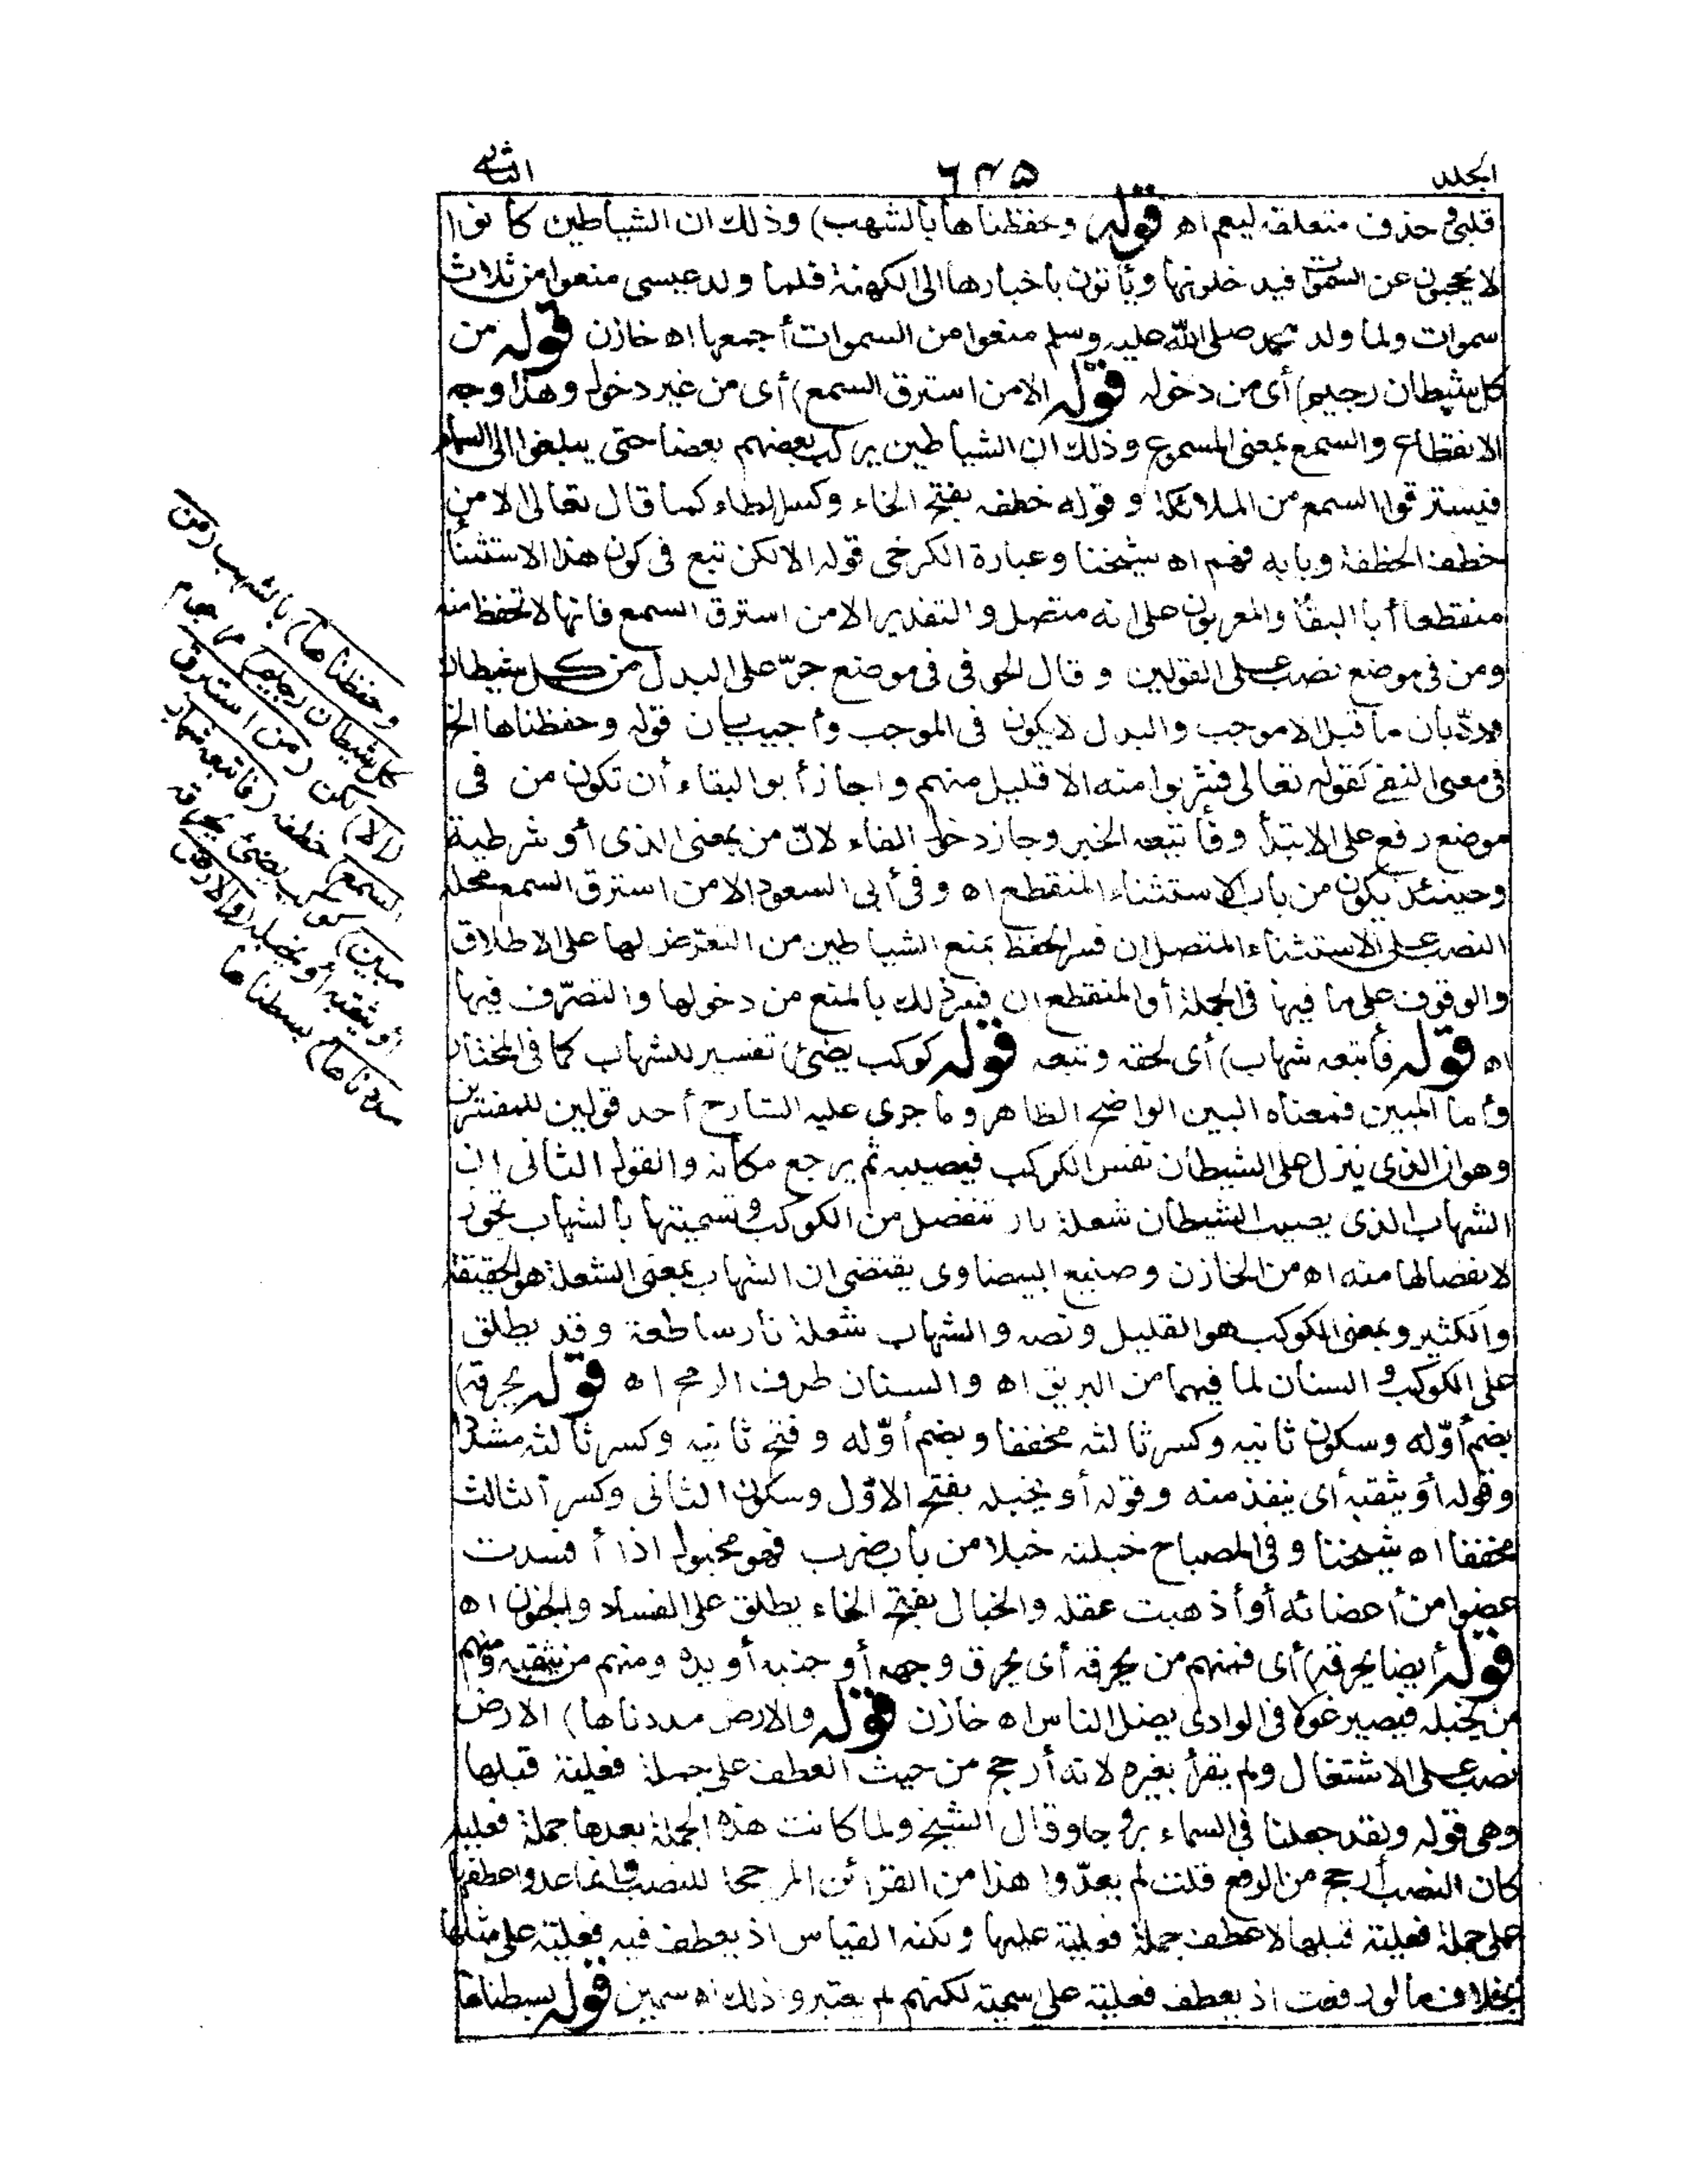 الجلد ٦٣٥ الثانى
قلبى حذف متعلقه ليعم اه قوله وحفظناها بالشهب) وذلك ان الشياطين كانوا
لا يحجبون عن السموت فيدخلونها ويأتون باخبارها الى الكهنة فلما ولد عيسى منعوا من ثلاث
سموات ولما ولد محمد صلى الله عليه وسلم منعوا من السموات أجمعها اه خازن قوله من
كل شيطان رجيم) أى من دخوله قوله الا من استرق السمع) أى من غير دخول وهذا وجه
الانقطاع والسمع بمعنى المسموع وذلك ان الشياطين يركب بعضهم بعضا حتى يبلغوا الى السماء
فيسترقوا السمع من الملائكة وقوله خطفه بفتح الخاء وكسر الطاء كما قال تعالى الا من
خطف الخطفة وبابه فهم اه شيخنا وعبارة الكرخى قوله الا لكن تبع فى كون هذا الاستثنأ
منقطعا أبا البقأ والمعربون على انه متصل والتقدير الا من استرق السمع فانها لا تحفظ منه
ومن فى موضع نصب على القولين وقال الحوفى فى موضع جرّ على البدل من كل شيطان
وردّ بأن ما قبل الا موجب والبدل لا يكون فى الموجب وأجيب بان قوله وحفظناها الخ
فى معنى النفى كقوله تعالى فشربوا منه الا قليل منهم واجاز أبو البقاء أن تكون من فى
موضع رفع على الابتدأ وفأتبعه الخبر وجاز دخول الفاء لانّ من بمعنى الذى أو شرطية
وحينئذ يكون من باب الاستثناء المنقطع اه وفى أبى السعود الا من استرق السمع محله
النصب على الاستثناء المتصل ان فسر الحفظ بمنع الشياطين من التعرّض لها على الاطلاق
والوقوف على ما فيها فى الجملة أو المنقطع ان فسر ذلك بالمنع من دخولها والتصرّف فيها
اه قوله فأتبعه شهاب) أى لحقه وتبعه قوله كوكب يضئ) تفسير للشهاب كما فى المختار
وأما المبين فمعناه البين الواضح الظاهر وما جرى عليه الشارح أحد قولين للمفسّرين
وهو ان الذى ينزل على الشيطان نفس الكوكب فيصيبه ثم يرجع مكانه والقول الثانى ان
الشهاب الذى يصيب الشيطان شعلة نار تنفصل من الكوكب وتسميتها بالشهاب تجوّز
لانفصالها منه اه من الخازن وصنيع البيضاوى يقتضى ان الشهاب بمعنى الشعلة هو الحقيقة
والكثير وبمعنى الكوكب هو القليل ونصه والشهاب شعلة نار ساطعة وقد يطلق
على الكوكب والسنان لما فيهما من البريق اه والسنان طرف الرمح اه قوله يحرقه)
بضم أوّله وسكون ثانيه وكسر ثالثه مخففا وبضم أوّله وفتح ثانيه وكسر ثالثه مشدّدا
وقوله أو يثقبه أى ينفذ منه وقوله أو يخبله بفتح الاوّل وسكون الثانى وكسر الثالث
مخففا اه شيخنا وفى المصباح خبلته خبلا من باب ضرب فهو مخبول اذا أفسدت
عضوا من أعضائه أو أذهبت عقله والخبال بفتح الخاء يطلق على الفساد والجنون اه
قوله أيضا يحرقه) أى فمنهم من يحرقه أى يحرق وجهه أو جنبه أو يده ومنهم من يثقبه ومنهم
من يخبله فيصير غولا فى الوادى يضل الناس اه خازن قوله والارض مددناها) الارض
نصب على الاشتغال ولم يقرأ بغيره لانه أرجح من حيث العطف على جملة فعلية قبلها
وهى قوله ولقد جعلنا فى السماء بروجا وقال الشيخ ولما كانت هذه الجملة بعدها جملة فعلية
كان النصب أرجح من الرفع قلت لم يعدّوا هذا من القرائن المرجحة للنصب وانما عدوا عطفها
على جملة فعلية قبلها لا عطف جملة فعلية عليها ولكنه القياس اذ يعطف فيه فعلية على مثلها
بخلاف ما لو رفعت اذ يعطف فعلية على اسمية لكنهم لم يعتبروا ذلك اه سمين قوله بسطناها
وحفظناها) بالشهب (من
كل شيطان رجيم) مرجوم
(الا) لكن (من استرق
السمع) خطفه (فاتبعه شهاب
مبين) كوكب يضئ يحرقه
أو يثقبه أو يخبله (والارض
مددناها) بسطناها